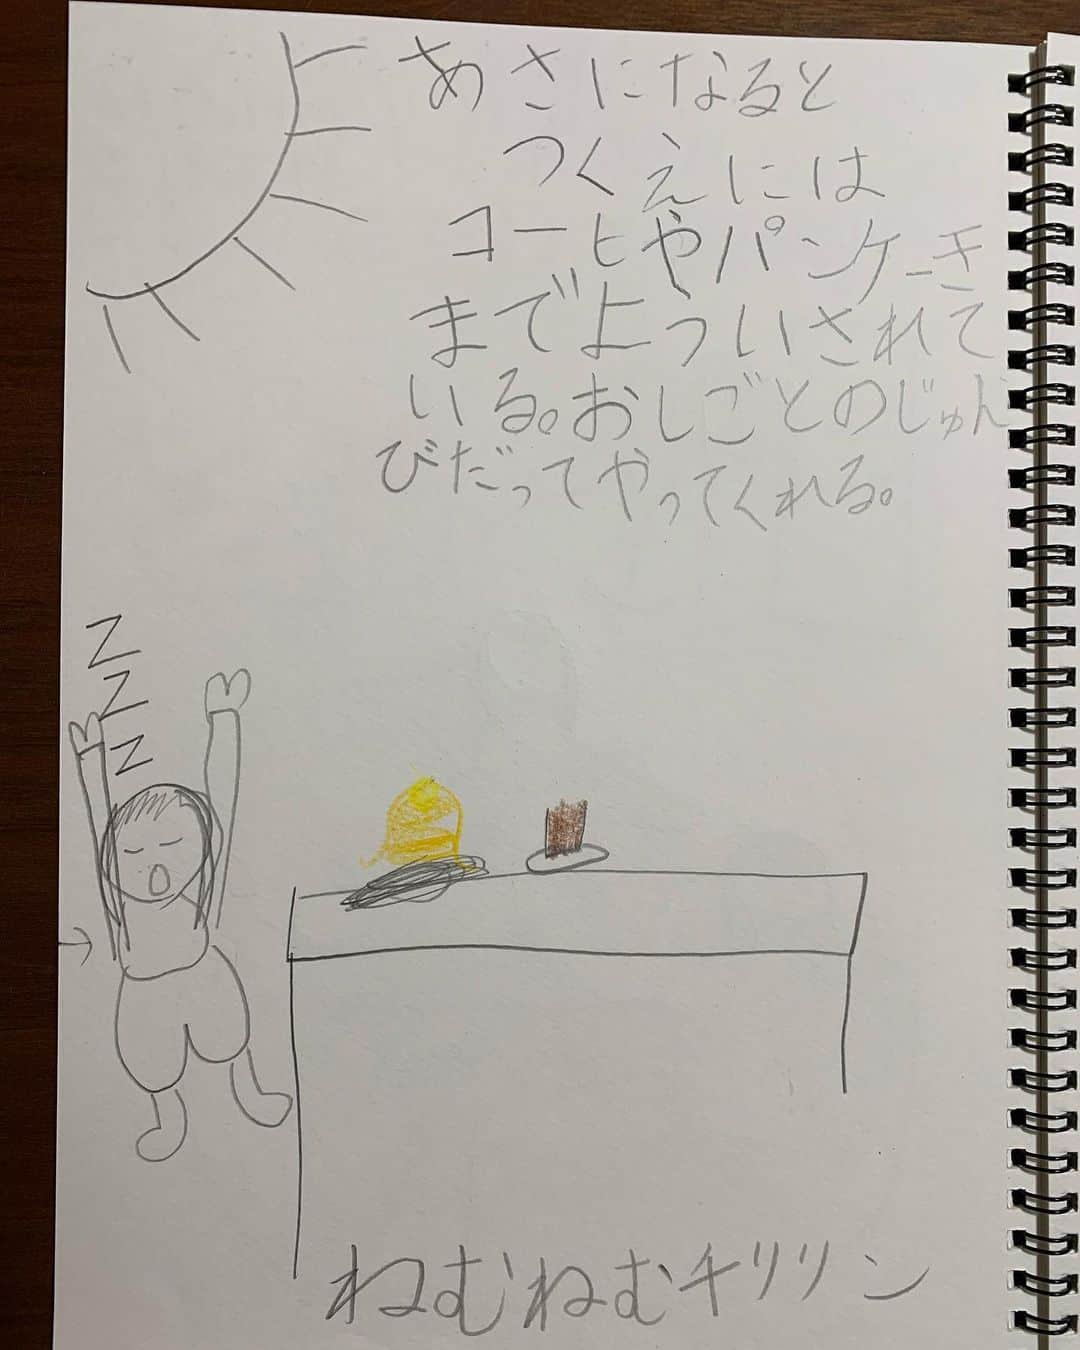 あさになると
つくえには
コーヒやパンケーキ
までよういされて
いる。おしごとのじゅん
びだってやってくれる。
Z
Z
Z
ねむねむキリリン